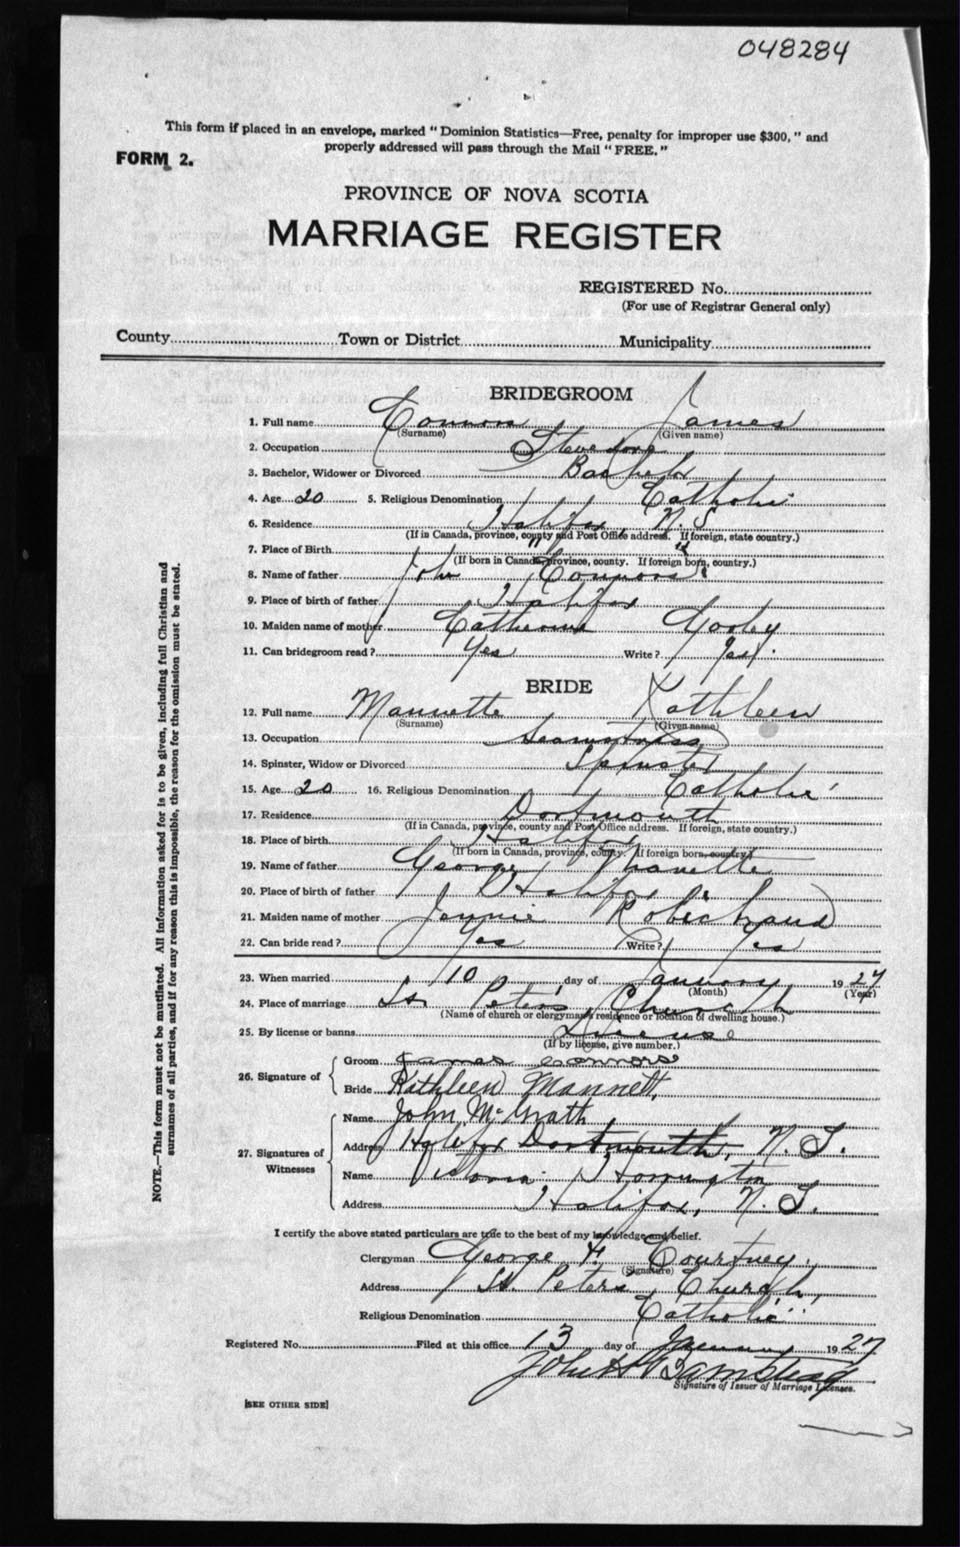 048284
This form if placed in an envelope, marked "Dominion Statistics—Free, penalty for improper use $300," and
properly addressed will pass through the Mail "FREE."
FORM 2.
PROVINCE OF NOVA SCOTIA
MARRIAGE REGISTER
REGISTERED No.
(For use of Registrar General only)
County Town or District Municipality
BRIDEGROOM
1. Full name Connors James
(Surname) (Given name)
2. Occupation Stevedore
3. Bachelor, Widower or Divorced Bachelor
4. Age 20 5. Religious Denomination Catholic
6. Residence Halifax, N.S
(If in Canada, province, county and Post Office address. If foreign, state country.)
7. Place of Birth " "
(If born in Canada, province, county. If foreign born, country.)
8. Name of father John Connors
9. Place of birth of father Halifax
10. Maiden name of mother Catherine
11. Can bridegroom read? Yes Write? Yes.
BRIDE
12. Full name Mannette Kathleen
(Surname) (Given name)
13. Occupation Seamstress
14. Spinster, Widow or Divorced Spinster
15. Age 20 16. Religious Denomination Catholic
17. Residence Dartmouth
(If in Canada, province, county and Post Office address. If foreign, state country.)
18. Place of birth Halifax
(If born in Canada, province, county. If foreign born, country.)
19. Name of father George Manette
20. Place of birth of father Halifax
21. Maiden name of mother Jennie Robichaud
22. Can bride read? Yes Write? Yes
23. When married 10 day of January 1927
(Month) (Year)
24. Place of marriage St. Peter's Church
(Name of church or clergyman's residence or location of dwelling house.)
25. By license or banns License
(If by license, give number.)
26. Signature of
Groom James Connors
Bride Kathleen Mannett,
27. Signatures of Witnesses
Name John McGrath
Address Halifax Dartmouth, N.S.
Name
Address Halifax, N.S.
I certify the above stated particulars are true to the best of my knowledge and belief.
Clergyman George F. Courtney,
(Signature)
Address St. Peters Church,
Religious Denomination Catholic
Registered No. Filed at this office 13 day of January 1927
John H Barnstead
Signature of Issuer of Marriage Licenses.
[SEE OTHER SIDE]
NOTE.—This form must not be mutilated. All information asked for is to be given, including full Christian and
surnames of all parties, and if for any reason this is impossible, the reason for the omission must be stated.